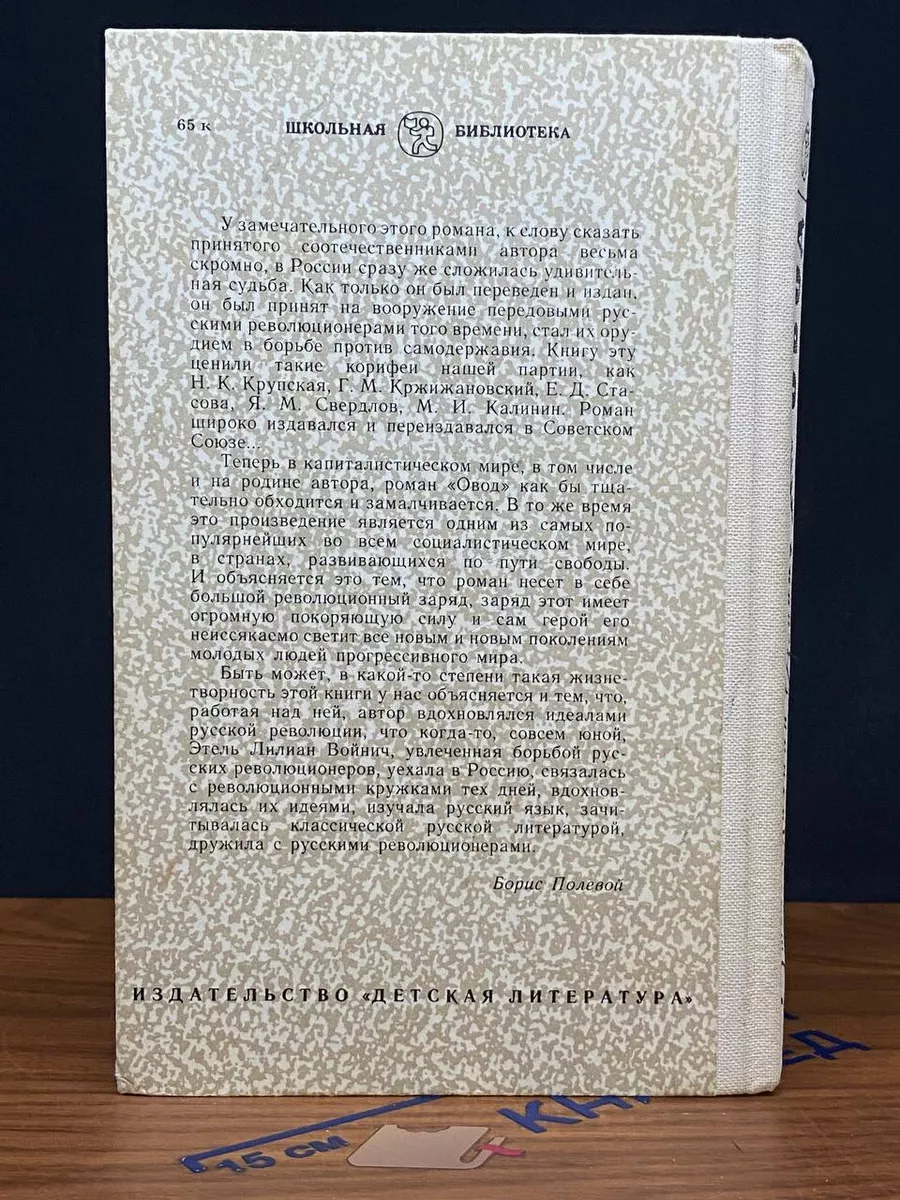 65 к ШКОЛЬНАЯ БИБЛИОТЕКА
У замечательного этого романа, к слову сказать
принятого соотечественниками автора весьма
скромно, в России сразу же сложилась удивитель-
ная судьба. Как только он был переведен и издан,
он был принят на вооружение передовыми рус-
скими революционерами того времени, стал их ору-
дием в борьбе против самодержавия. Книгу эту
ценили такие корифеи нашей партии, как
Н. К. Крупская, Г. М. Кржижановский, Е. Д. Ста-
сова, Я. М. Свердлов, М. И. Калинин. Роман
широко издавался и переиздавался в Советском
Союзе...
Теперь в капиталистическом мире, в том числе
и на родине автора, роман «Овод» как бы тщa-
тельно обходится и замалчивается. В то же время
это произведение является одним из самых по-
пулярнейших во всем социалистическом мире,
в странах, развивающихся по пути свободы.
И объясняется это тем, что роман несет в себе
большой революционный заряд, заряд этот имеет
огромную покоряющую силу и сам герой его
неиссякаемо светит все новым и новым поколениям
молодых людей прогрессивного мира.
Быть может, в какой-то степени такая жизне-
творность этой книги у нас объясняется и тем, что,
работая над ней, автор вдохновлялся идеалами
русской революции, что когда-то, совсем юной,
Этель Лилиан Войнич, увлеченная борьбой рус-
ских революционеров, уехала в Россию, связалась
с революционными кружками тех дней, вдохнов-
лялась их идеями, изучала русский язык, зачи-
тывалась классической русской литературой,
дружила с русскими революционерами.
Борис Полевой
ИЗДАТЕЛЬСТВО «ДЕТСКАЯ ЛИТЕРАТУРА»
15 см